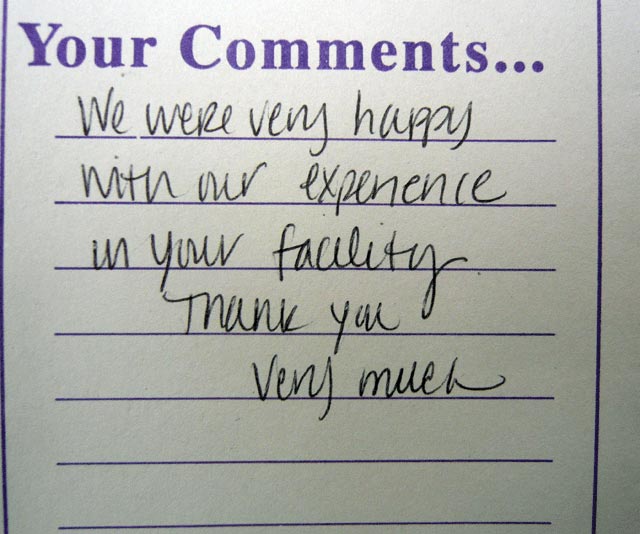 Your Comments...
We were very happy
with our experience
in your facility.
Thank you
very much